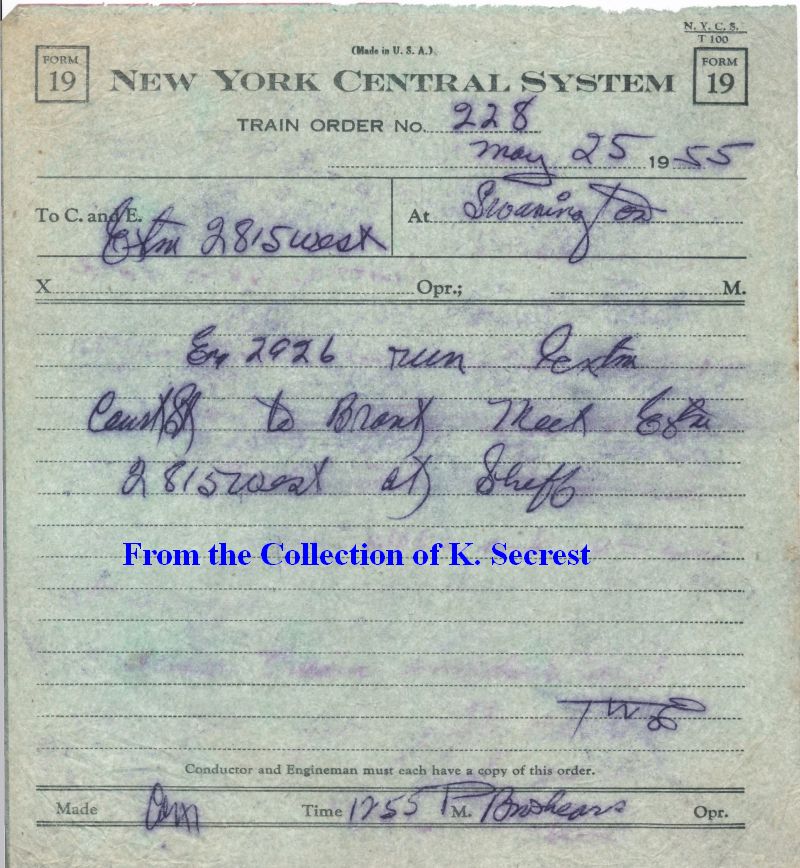 N. Y. C. S.
T 100
(Made in U. S. A.)
FORM 19 NEW YORK CENTRAL SYSTEM FORM 19
TRAIN ORDER No. 228
May 25 1955
To C. and E. Extra 2815 west At Swanington
X Opr.; M.
Eng 2926 run Extra
to Brant Meet Extra
2815 west at Sheff
From the Collection of K. Secrest
Conductor and Engineman must each have a copy of this order.
Made Time 1255 P M. Broshears Opr.